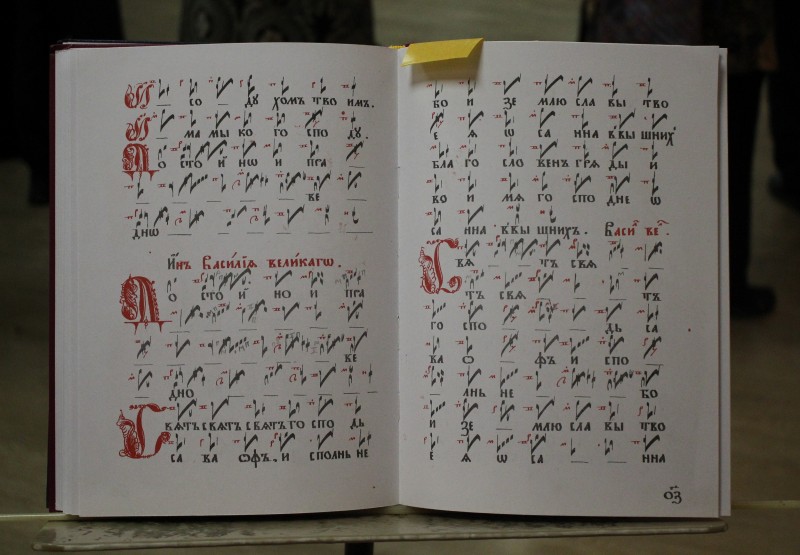 И со дꙋ хомъ твоимъ.
И мамы ко го спо дꙋ.
До сто и҆ но и пра
ве
дно
И҆нъ Васи́лїѧ вели́кагѡ.
До сто и҆ но и пра
ве
дно
Свѧтъ свѧтъ свѧтъ го спо дь
са ва оѳъ. и сполнь не
бо и зе млю сла вы тво
е ѧ ѡ са нна ввы шнихъ
бла го сло венъ грѧ ды и
во и мѧ го спо дне ѡ
са нна ввы шнихъ. Васи ве
Свѧ тъ свѧ
тъ свѧ тъ
го спо дь са
ва о ѳъ и спо
лнь не бо
и зе млю сла вы тво
е ѧ ѡ са нна
ѻз